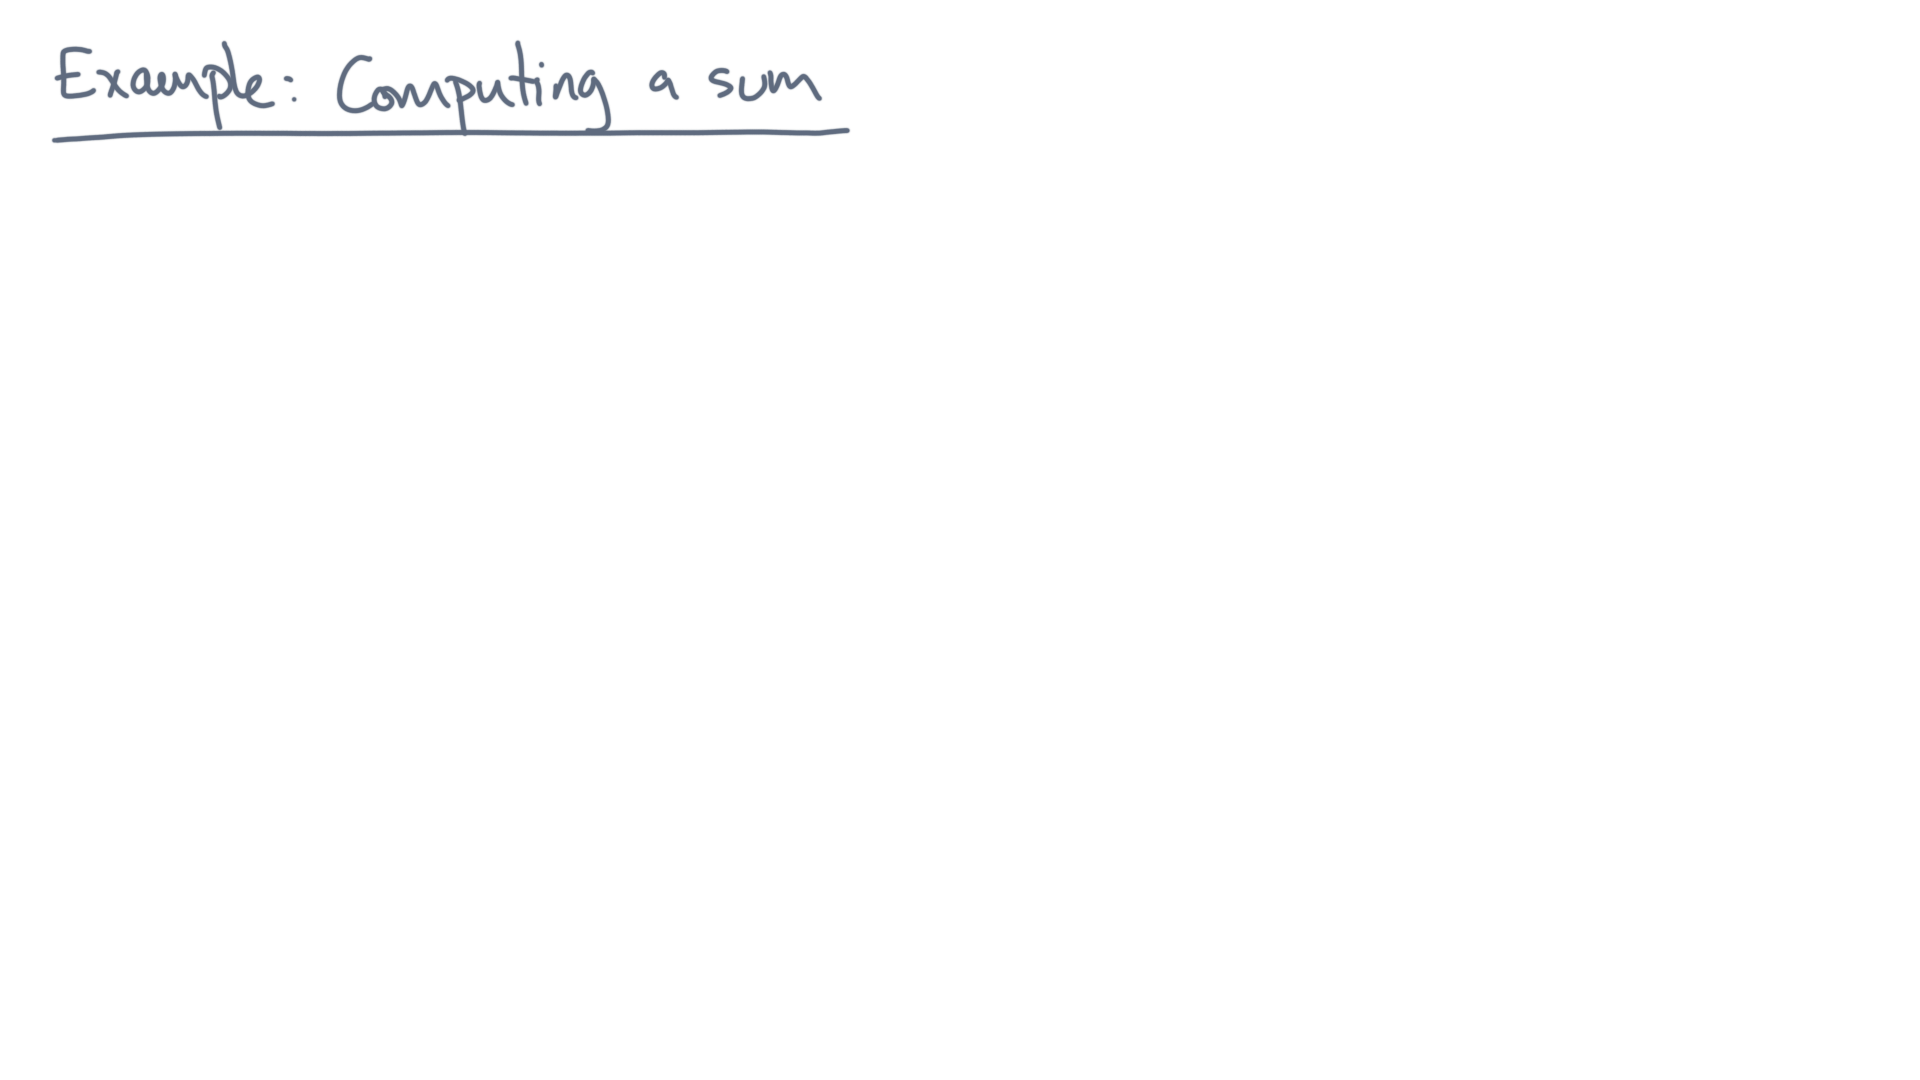 Example: Computing a sum